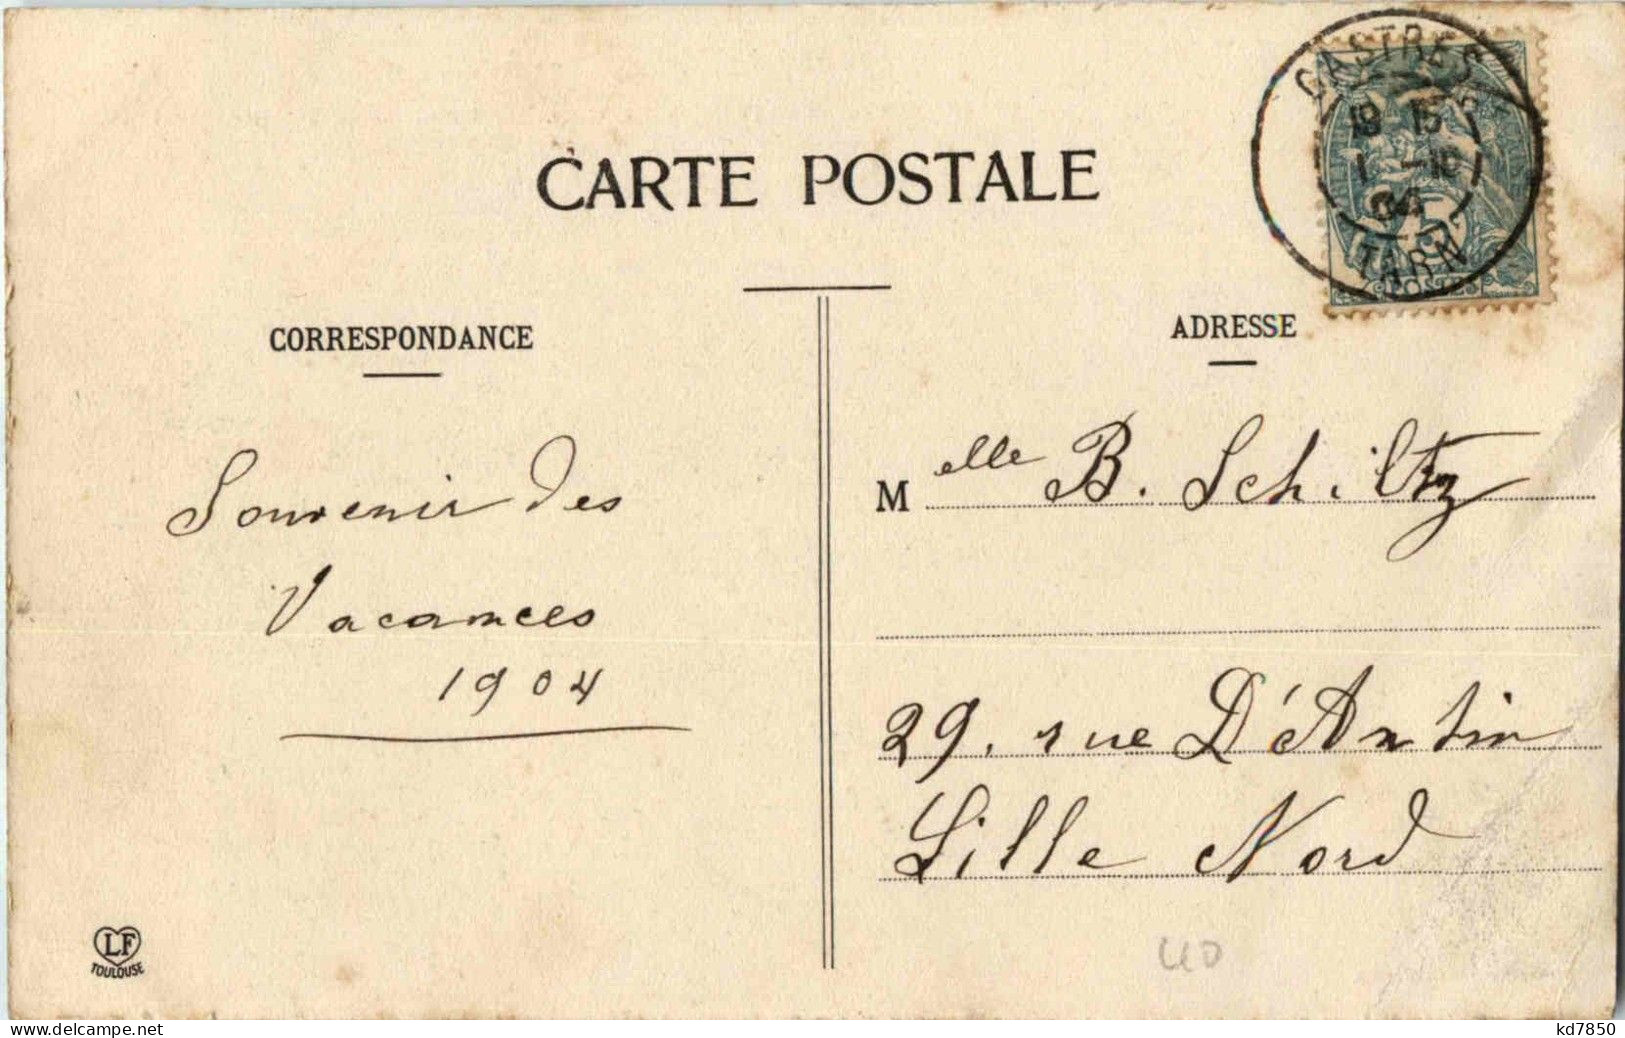 CARTE POSTALE
CASTRES
18 15
1 -10
04
TARN
POSTES
CORRESPONDANCE
Souvenir des
Vacances
1904
LF
TOULOUSE
ADRESSE
Melle B. Schiltz
29, rue D'Antin
Lille Nord
40
www.delcampe.net
kd7850